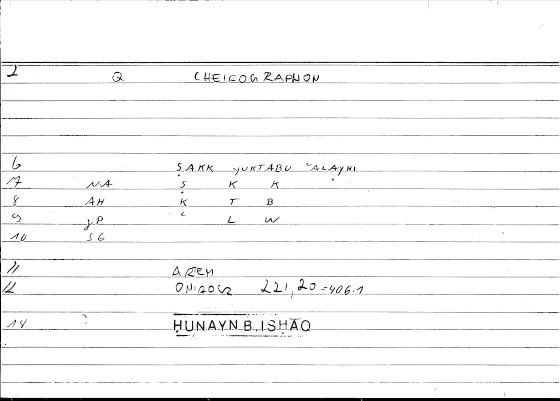 2 Q CHEIROGRAPHON
6 ṢAKK YUKTABU ʿALAYHI
7 NA Ṣ K K
8 AH K T B
9 JP ʿ L W
10 SG
11 ARTEM
12 ONIROCR 221,20 = 406.1
14 ḤUNAYN B. ISḤĀQ